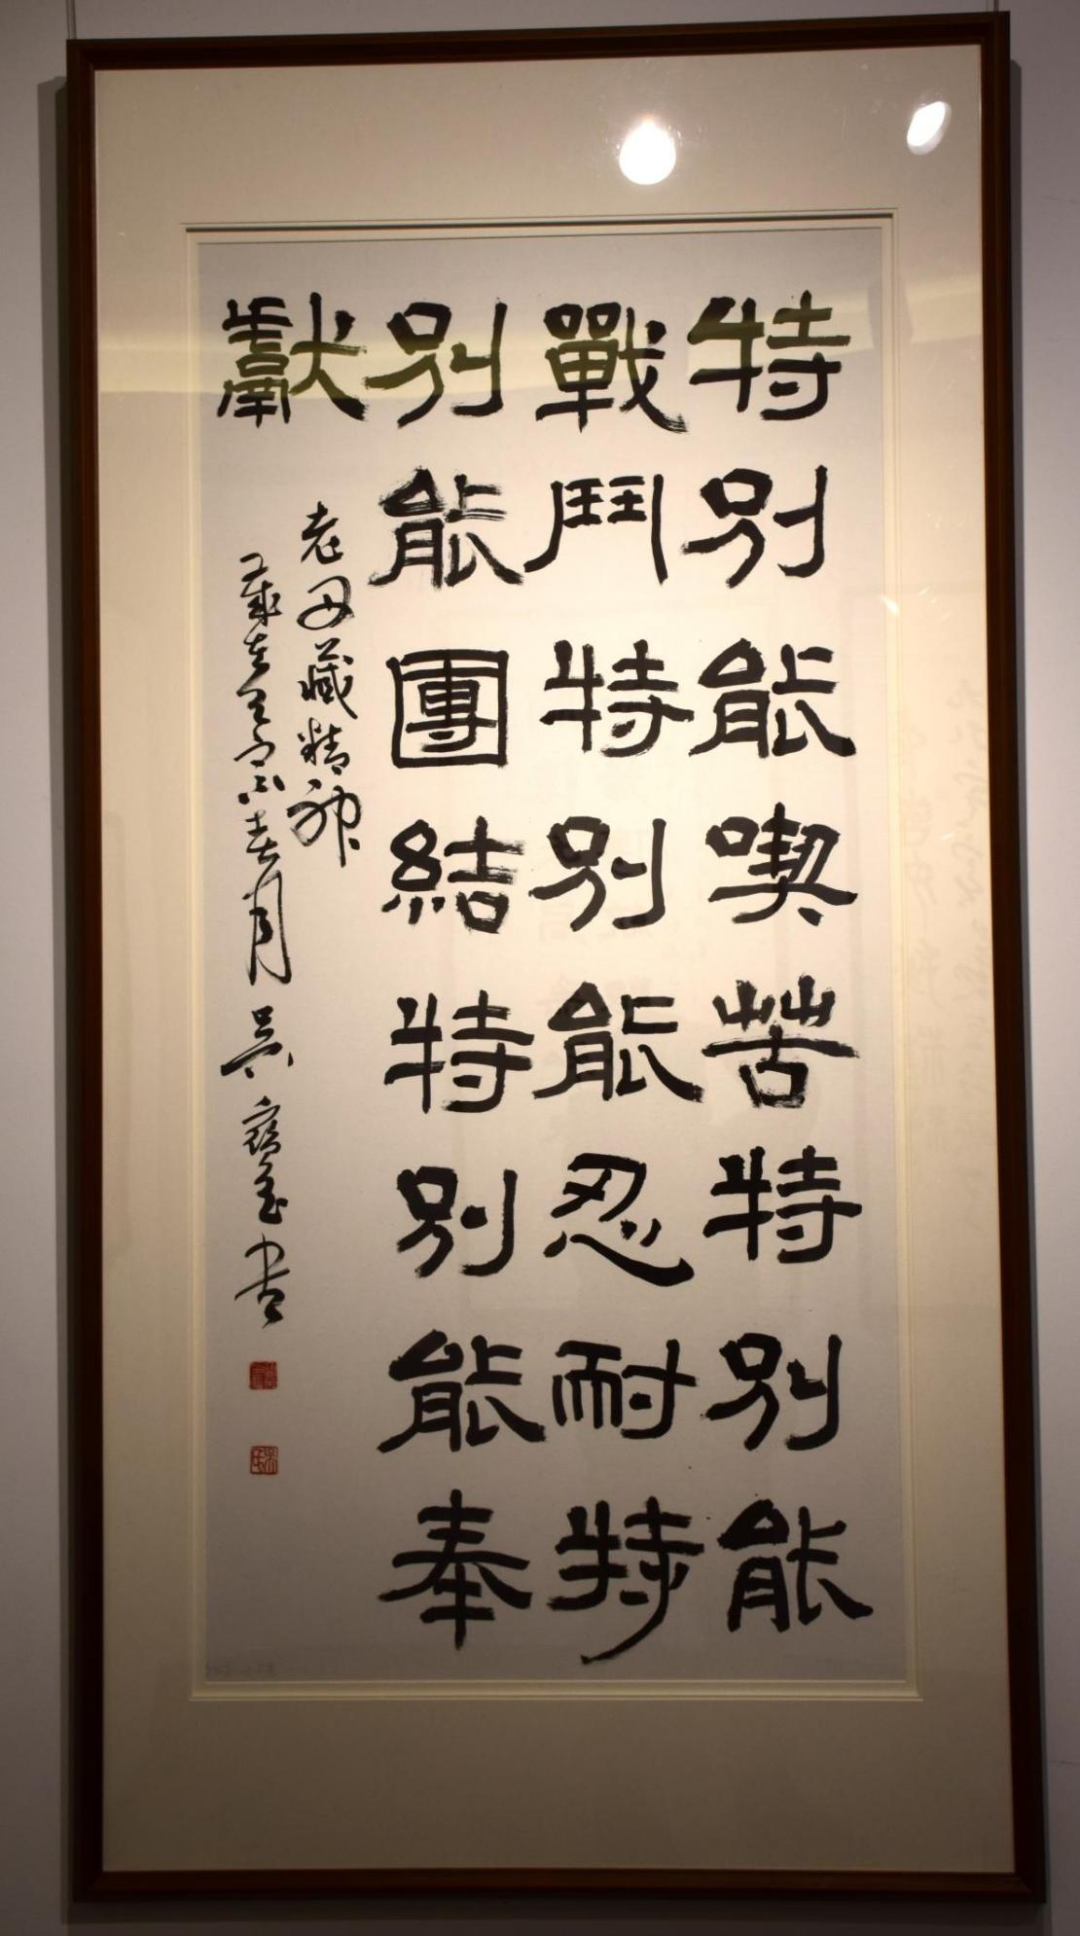 特別能喫苦特別能
戰鬥特別能忍耐特
別能團結特別能奉
獻
老西藏精神
歲在
春月吳寶書